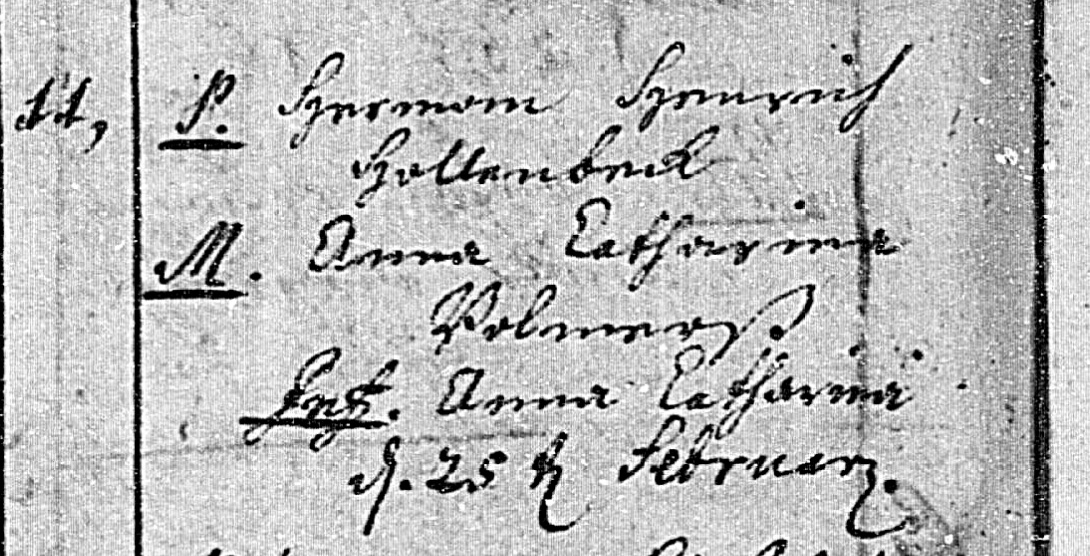 11, P. Herman Henrich
Hollenbeck
M. Anna Catharina
Volmerß
Inf. Anna Catharina
d. 25 t Februarÿ.